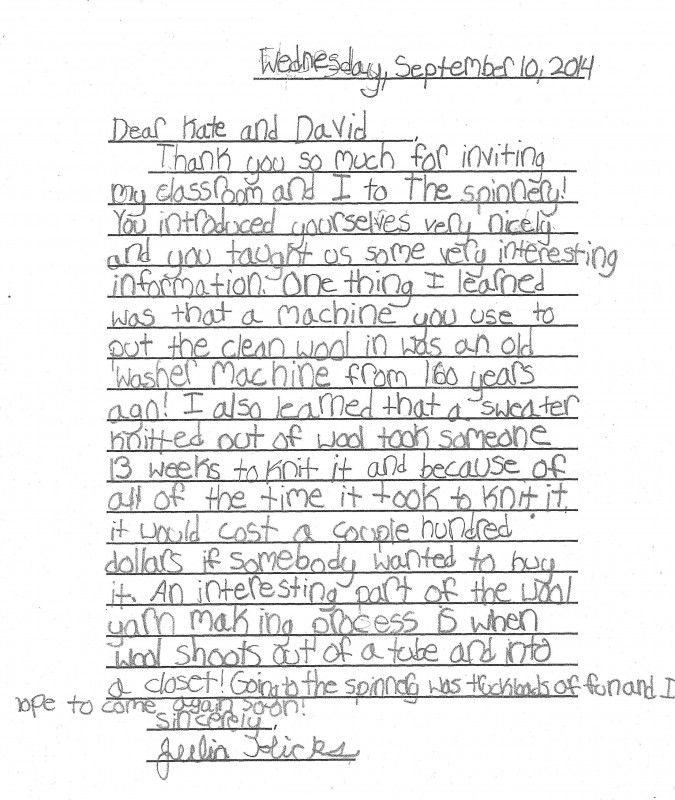 Wednesday, September 10, 2014
Dear Kate and David,
Thank you so much for inviting
my classroom and I to The spinnery!
You introduced yourselves very nicely
and you taught us some very interesting
information. One thing I learned
was that a machine you use to
put the clean wool in was an old
washer machine from 160 years
ago! I also learned that a sweater
knitted out of wool took someone
13 weeks to knit it and because of
all of the time it took to knit it,
it would cost a couple hundred
dollars if somebody wanted to buy
it. An interesting part of the wool
yarn making process is when
wool shoots out of a tube and into
a closet! Going to the spinnery was truckloads of fun and I
hope to come again soon!
Sincerely,